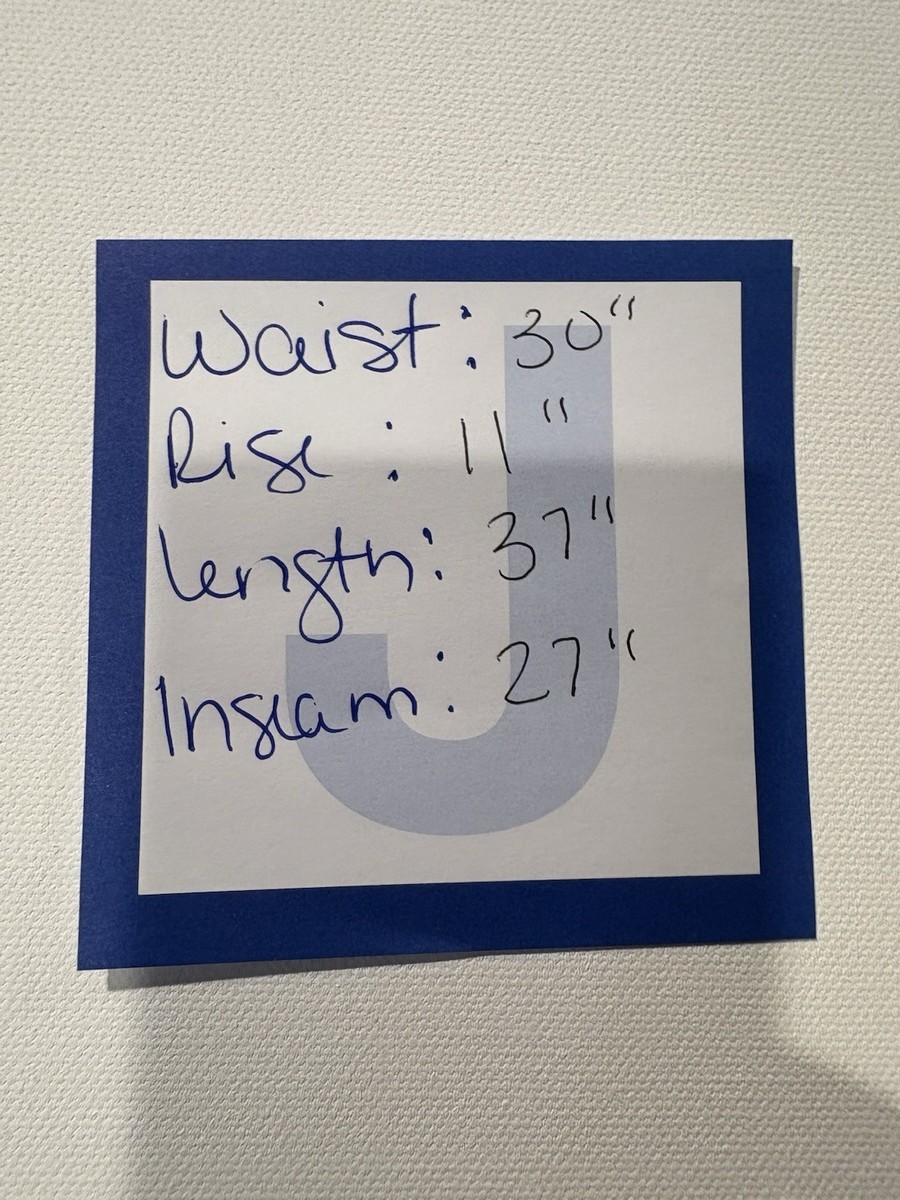 Waist: 30"
Rise: 11"
Length: 37"
Inseam: 27"
J